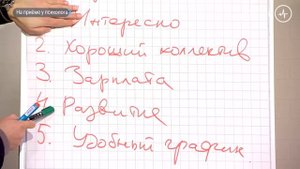 На приёме у психолога
Интересно
2. Хороший коллектив
3. Зарплата
4. Развитие
5. Удобный график